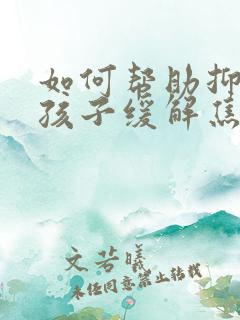 如何帮助抑
孩子缓解焦
文若曦
未经同意禁止转载